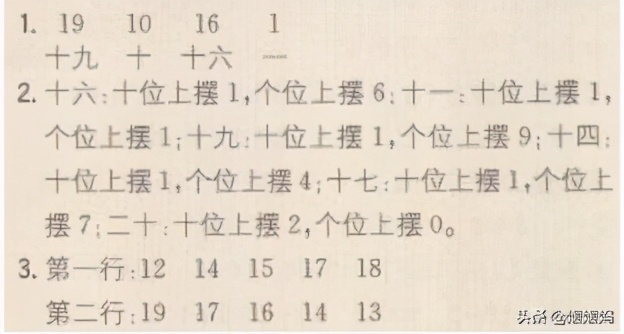 1. 19 10 16 1
十九 十 十六
2. 十六:十位上摆1,个位上摆6;十一:十位上摆1,
个位上摆1;十九:十位上摆1,个位上摆9;十四:
十位上摆1,个位上摆4;十七:十位上摆1,个位上
摆7;二十:十位上摆2,个位上摆0。
3. 第一行:12 14 15 17 18
第二行:19 17 16 14 13
头条 @烟烟妈